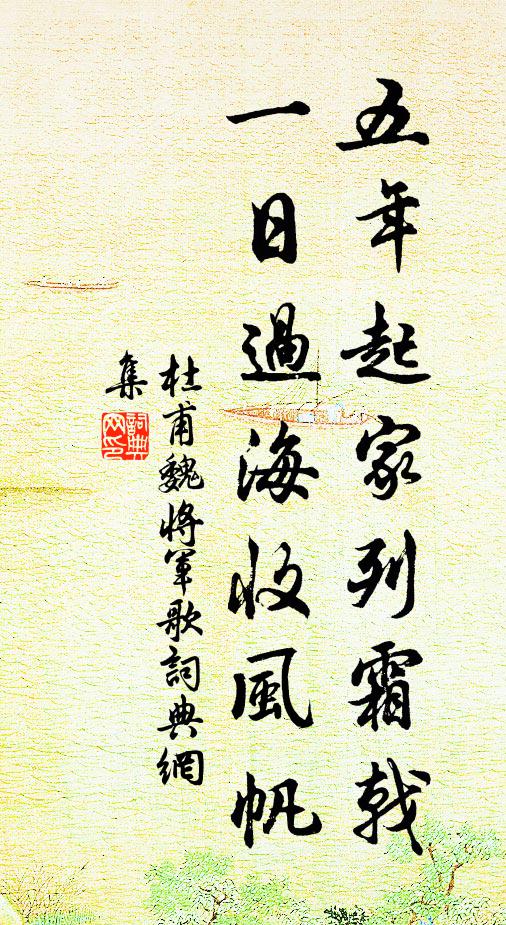 五年起家列霜戟
一日過海收風帆
杜甫魏將軍歌詞典網
集
詞典網印